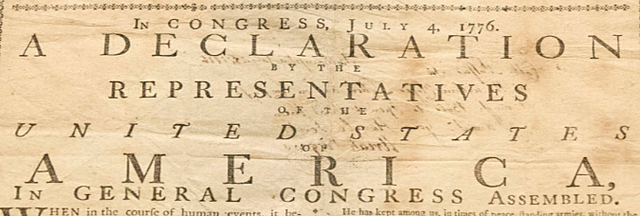 IN CONGRESS, JULY 4, 1776.
A DECLARATION
BY THE
REPRESENTATIVES
OF THE
UNITED STATES
OF
AMERICA,
IN GENERAL CONGRESS ASSEMBLED.
WHEN in the course of human events, it be- He has kept among us, in times of peace, standing armies, without the